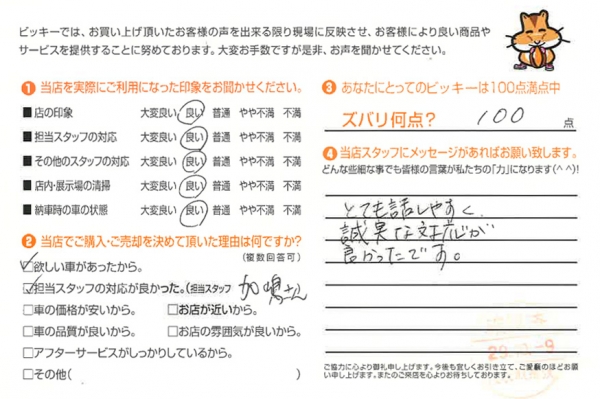 ビッキーでは、お買い上げ頂いたお客様の声を出来る限り現場に反映させ、お客様により良い商品や
サービスを提供することに努めております。大変お手数ですが是非、お声を聞かせてください。
❶ 当店を実際にご利用になった印象をお聞かせください。
■店の印象 大変良い 良い 普通 やや不満 不満
■担当スタッフの対応 大変良い 良い 普通 やや不満 不満
■その他のスタッフの対応 大変良い 良い 普通 やや不満 不満
■店内・展示場の清掃 大変良い 良い 普通 やや不満 不満
■納車時の車の状態 大変良い 良い 普通 やや不満 不満
❷ 当店でご購入・ご売却を決めて頂いた理由は何ですか?
(複数回答可)
☑欲しい車があったから。
☑担当スタッフの対応が良かった。(担当スタッフ 加嶋さん
□車の価格が安いから。 □お店が近いから。
□車の品質が良いから。 □お店の雰囲気が良いから。
□アフターサービスがしっかりしているから。
□その他( )
❸ あなたにとってのビッキーは100点満点中
ズバリ何点? 100 点
❹ 当店スタッフにメッセージがあればお願い致します。
どんな些細な事でも皆様の言葉が私たちの「力」になります(^^)!
とても話しやすく、
誠実な対応が
良かったです。
ご協力に心より御礼申し上げます。今後も宜しくお引き立て、ご愛顧のほどお願
い申し上げます。またのご来店を心よりお待ちしております。